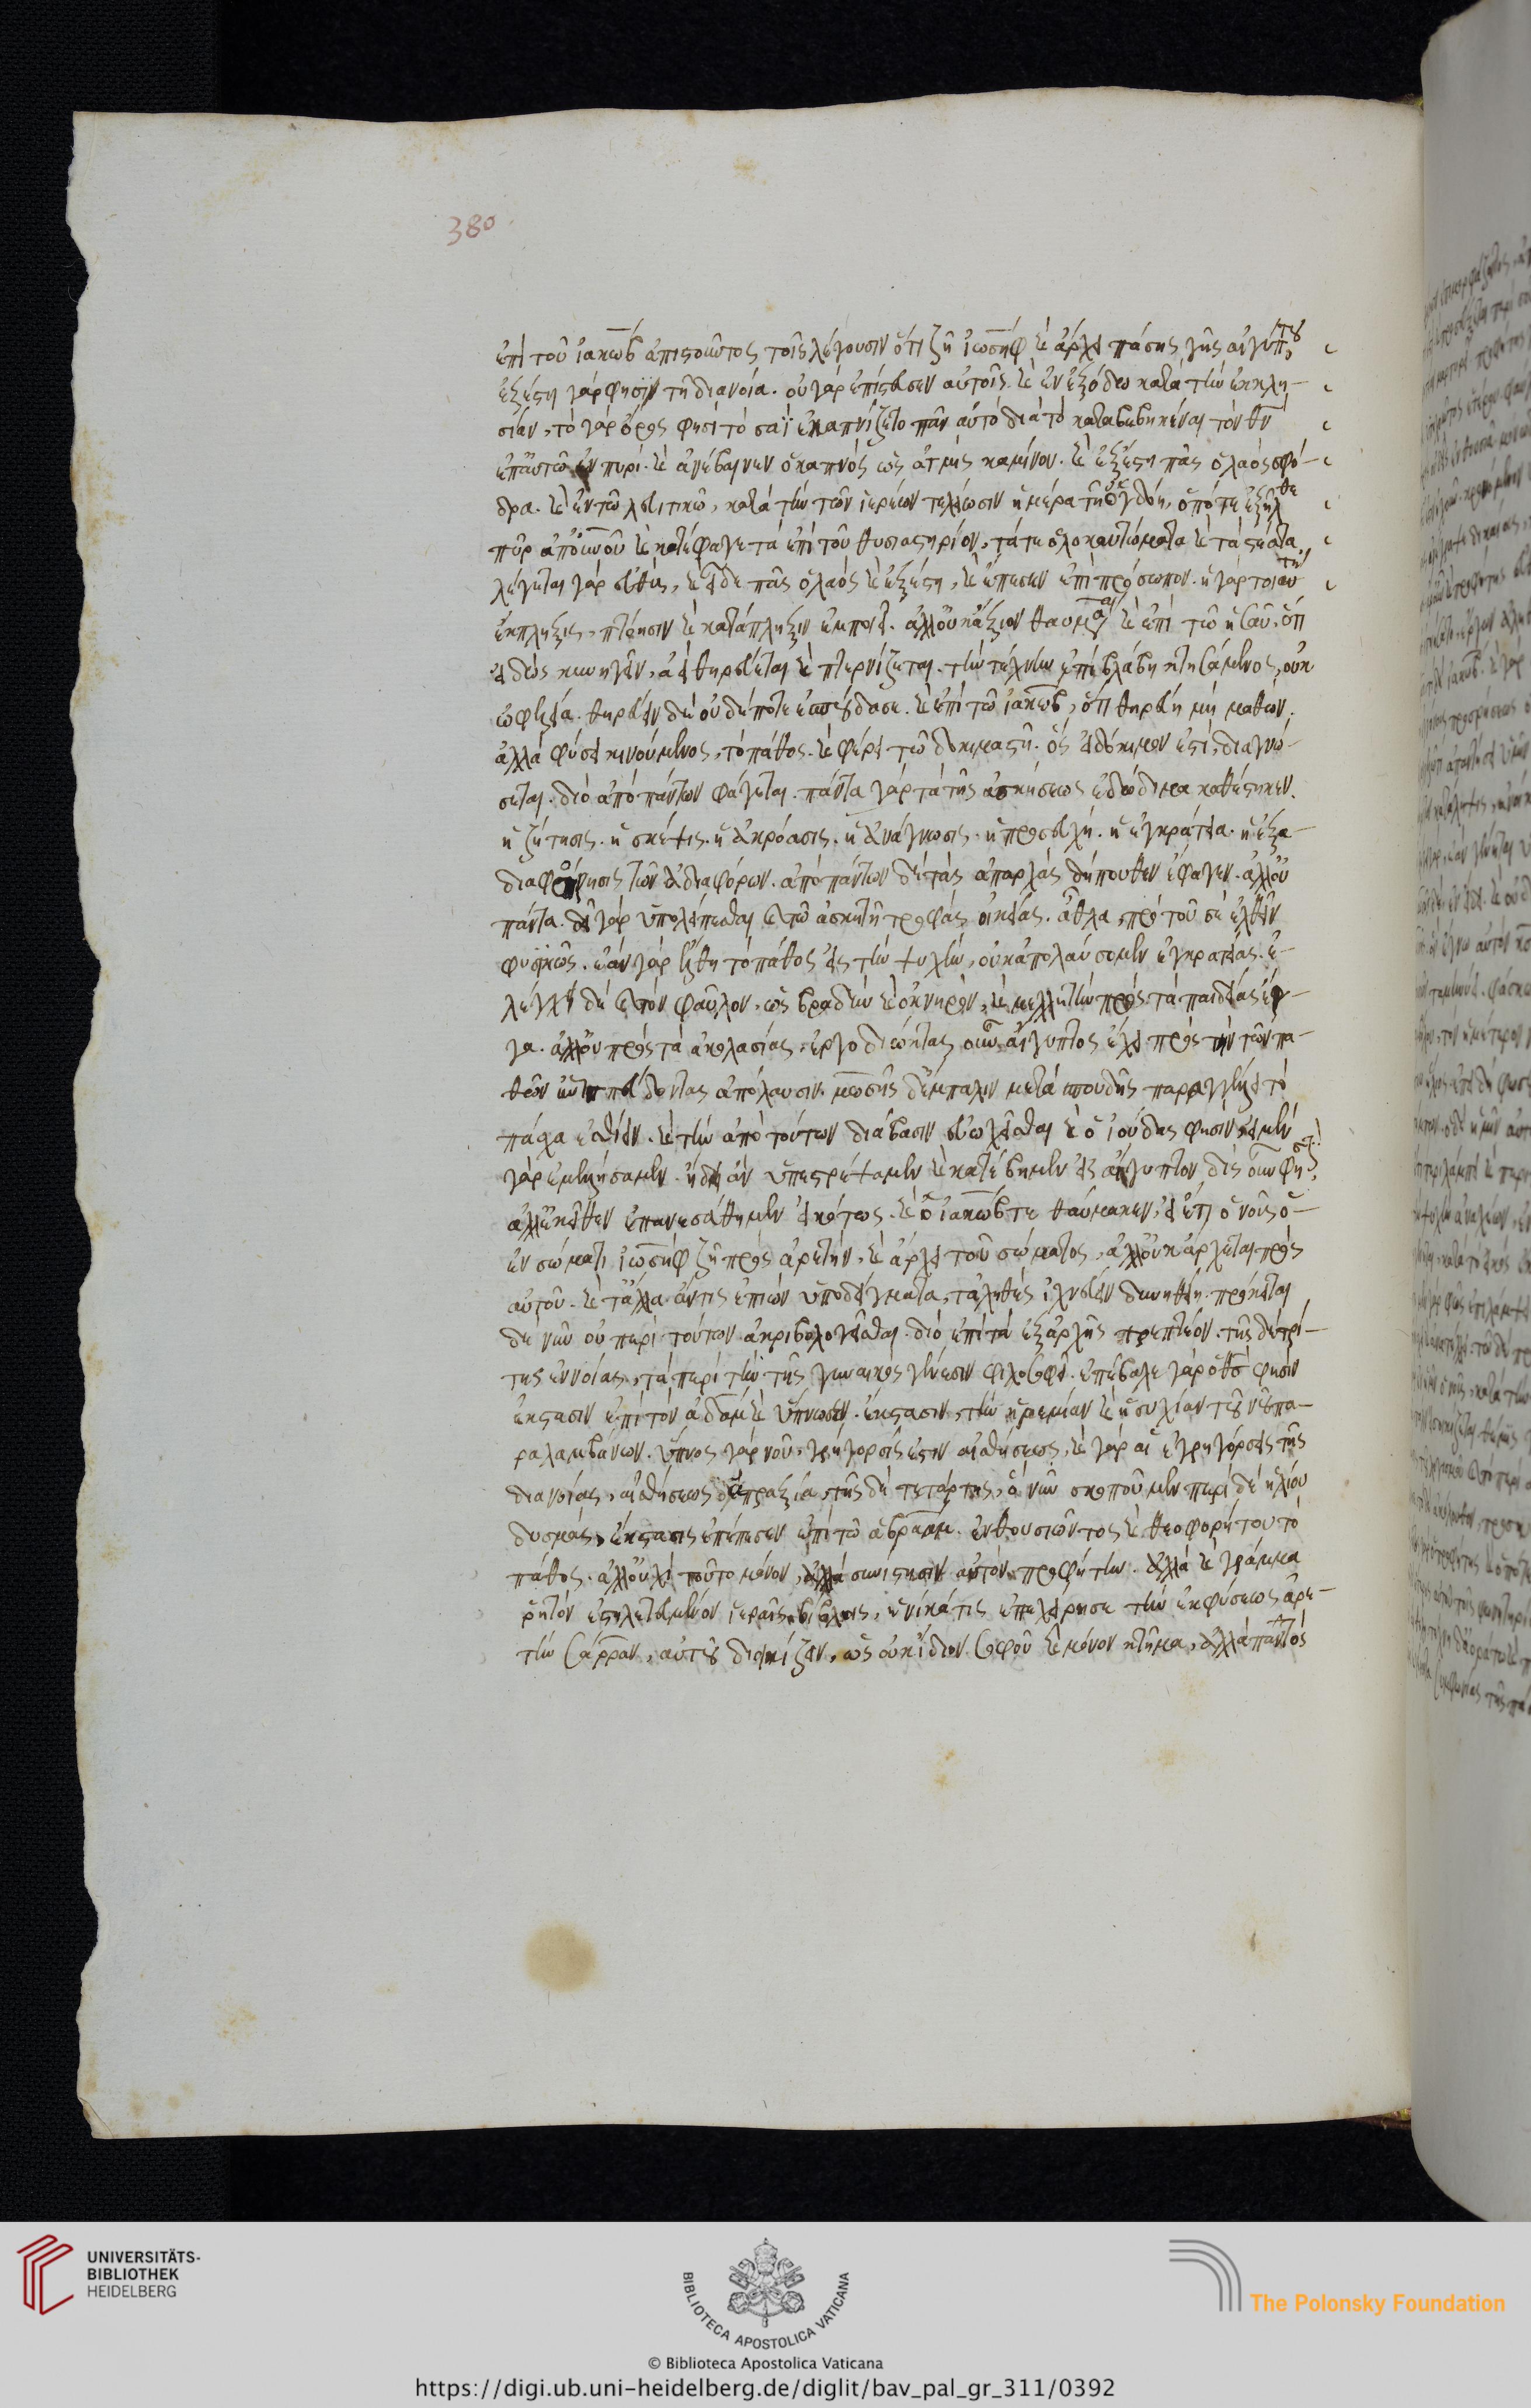 380
ἐπὶ τοῦ ἰακὼβ ἀπιστοῦντος τοῖς λέγουσιν ὅτι ζῆ ἰωσὴφ καὶ ἄρχει πάσης γῆς αἰγύπτου
ἐξέστη γάρ φησιν τῆ διανοία. οὐ γὰρ ἐπίστευσεν αὐτοῖς. καὶ ἐν ἐξόδω κατὰ τὴν ἐκκλη-
σίαν, τὸ γὰρ ὄρος φησὶ τὸ σαϊ ἐκαπνίζετο πᾶν αὐτὸ διὰ τὸ καταβεβηκέναι τὸν θν
ἐπ' αὐτῶ ἐν πυρί. καὶ ἀνέβαινεν ὁ καπνὸς ὡς ἀτμὶς καμίνου. καὶ ἐξέστη πᾶς ὁ λαὸς σφό-
δρα. καὶ ἐν τῶ λευιτικῶ, κατὰ τὴν τῶν ἱερέων τελείωσιν ἡμέρα τῆ ὀγδόη, ὁπότε ἐξῆλθε
πῦρ ἀπ' οὐνοῦ καὶ κατέφαγε τὰ ἐπὶ τοῦ θυσιαστηρίου, τά τε ὁλοκαυτώματα καὶ τὰ στέατα,
λέγεται γὰρ εὐθὺς, καὶ εἶδε πᾶς ὁ λαὸς καὶ ἐξέστη, καὶ ἔπεσεν ἐπὶ πρόσωπον. ἡ γὰρ τοιαύτη
ἔκπληξις, πτόησιν καὶ κατάπληξιν ἐμποιεῖ. ἀλλ' οὐκ ἄξιον θαυμάσαι καὶ ἐπὶ τῶ ἡσαῦ, ὅτι
εἰδὼς κυνηγεῖν, ἀεὶ θηρεύεται καὶ πτερνίζεται. τὴν τέχνην ἐπὶ βλάβη κτησάμενος, οὐκ
ὠφελεία. θηρεύειν δὲ οὐδέποτε ἐσπούδασε. καὶ ἐπὶ τῶ ἰακὼβ, ὅτι θηρεύει μὴ μαθὼν.
ἀλλὰ φύσει κινούμενος, τὸ πάθος. καὶ φέρει τῶ δοκιμαστῆ. ὃς εἰ δόκιμον ἐστὶ, διαγνώ-
σεται. διὸ ἀπὸ πάντων φάγεται. πάντα γὰρ τὰ τῆς ἀσκήσεως ἐδώδιμα καθέστηκεν.
ἡ ζήτησις. ἡ σκέψις. ἡ ἀκρόασις. ἡ ἀνάγνωσις. ἡ προσοχή. ἡ ἐγκράτεια. ἡ ἐξα-
διαφόρησις τῶν ἀδιαφόρων. ἀπὸ πάντων δὲ τὰς ἀπαρχὰς δήπουθεν ἔφαγεν. ἀλλ' οὐ
πάντα. δεῖ γὰρ ὑπολείπεσθαι καὶ τῶ ἀσκητῆ τροφὰς οἰκείας. ἆθλα, πρὸ τοῦ σὲ ἐλθεῖν
φυσικῶς. ἐὰν γὰρ ἔλθη τὸ πάθος εἰς τὴν ψυχὴν, οὐκ ἀπολαύσομεν ἐγκρατείας. ἐ-
λέγχει δὲ καὶ τὸν φαῦλον, ὡς βραδὺν καὶ ὀκνηρὸν, καὶ μελλητὴν πρὸς τὰ παιδείας ἔρ-
γα. ἀλλ' οὐ πρὸς τὰ ἀκολασίας. ἐργοδιώκτας οὖν αἴγυπτος ἔχει πρὸς τὴν τῶν πα-
θῶν ἐπισπεύδοντας ἀπόλαυσιν. μωσῆς δ' ἔμπαλιν μετὰ σπουδῆς παραγγέλλει τὸ
πάσχα ἐσθίειν. καὶ τὴν ἀπὸ τούτων διάβασιν εὐωχεῖσθαι καὶ ὁ ἰούδας φησὶν, εἰ μὲν
γὰρ ἐμελήσαμεν. ἤδη ἂν ὑπεστρέψαμεν καὶ κατέβημεν εἰς αἴγυπτον δὶς οὔν φησιν
ἀλλ' ἐκεῖθεν ἐπανεσώθημεν εἰκότως. καὶ ὁ ἰακὼβ τεθαύμακεν, εἰ ἔτι ὁ νοῦς ὁ-
ἐν σώματι ἰωσὴφ ζῆ πρὸς ἀρετὴν, καὶ ἄρχει τοῦ σώματος, ἀλλ' οὐκ ἄρχεται πρὸς
αὐτοῦ. καὶ τἆλλα ἄν τις ἐπιὼν ὑποδείγματα, τἀληθὲς ἰχνεύειν δυνηθείη. πρόκειται
δὲ νῦν οὐ περὶ τούτων ἀκριβολογεῖσθαι. διὸ ἐπὶ τὰ ἐξ ἀρχῆς τρεπτέον. τῆς δὲ τρί-
της ἐννοίας, τὰ περὶ τὴν τῆς γυναικὸς γένεσιν φιλοσοφεῖ. ἐπέβαλε γὰρ ὁ θς φησὶν
ἔκστασιν ἐπὶ τὸν ἀδὰμ καὶ ὕπνωσεν. ἔκστασιν, τὴν ἠρεμίαν καὶ ἡσυχίαν τοῦ νοῦ πα-
ραλαμβάνων. ὕπνος γὰρ νοῦ, ἐγρήγορσίς ἐστιν αἰσθήσεως, καὶ γὰρ αἱ ἐγρηγόρσεις τῆς
διανοίας, αἰσθήσεως ἀπραξία, τῆς δὲ τετάρτης, ἃ νῦν σκοποῦμεν περὶ δὲ ἡλίου
δυσμὰς, ἔκστασις ἐπέπεσεν ἐπὶ τῶ ἀβραὰμ. ἐνθουσιῶντος καὶ θεοφορήτου τὸ
πάθος. ἀλλ' οὐχὶ τοῦτο μόνον, ἀλλὰ συνίστησιν αὐτὸν, προφήτην. ἀλλὰ καὶ γράμμα
ῥητὸν ἐστηλιτευμένον ἱεραῖς βίβλοις, ἡνίκά τις ἐπεχείρησε τὴν ἐκ φύσεως ἀρε-
τὴν σάρραν, αὐτοῦ διοικίζειν, ὡς οὐκ ἴδιον σοφοῦ καὶ μόνον κτῆμα, ἀλλὰ παντὸς
UNIVERSITÄTS-
BIBLIOTHEK
HEIDELBERG
BIBLIOTECA APOSTOLICA VATICANA
The Polonsky Foundation
© Biblioteca Apostolica Vaticana
https://digi.ub.uni-heidelberg.de/diglit/bav_pal_gr_311/0392